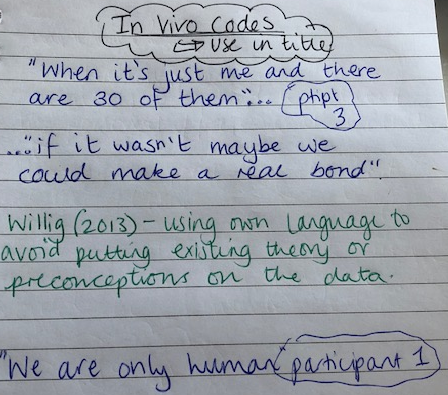 In Vivo Codes
↳ use in title
"When it's just me and there
are 30 of them"... phpt
3
..."if it wasn't maybe we
could make a real bond".
Willig (2013) - using own language to
avoid putting existing theory or
preconceptions on the data.
"We are only human" participant 1